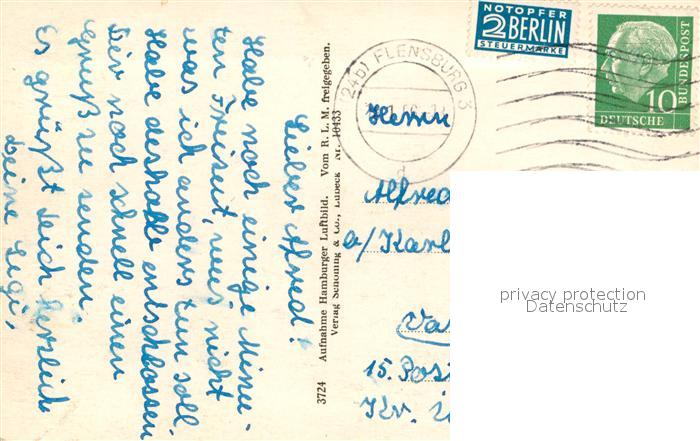 Lieber Alfred!
Habe noch einige Minu-
ten Freizeit, weis nicht
was ich anders tun soll.
Habe deshalb entschlossen
Dir noch schnell einen
Gruß zu senden.
Es grüßt Dich herzlich
Deine Sigi.
3724 Aufnahme Hamburger Luftbild. Vom R. L. M. freigegeben.
Verlag Schöning & Co., Lübeck Nr. 10433
NOTOPFER
2 BERLIN
STEUERMARKE
(24b) FLENSBURG 3
d
10
DEUTSCHE
BUNDESPOST
Herrn
Alfred
a/ Karl
15. Pos
Kr.
privacy protection
Datenschutz